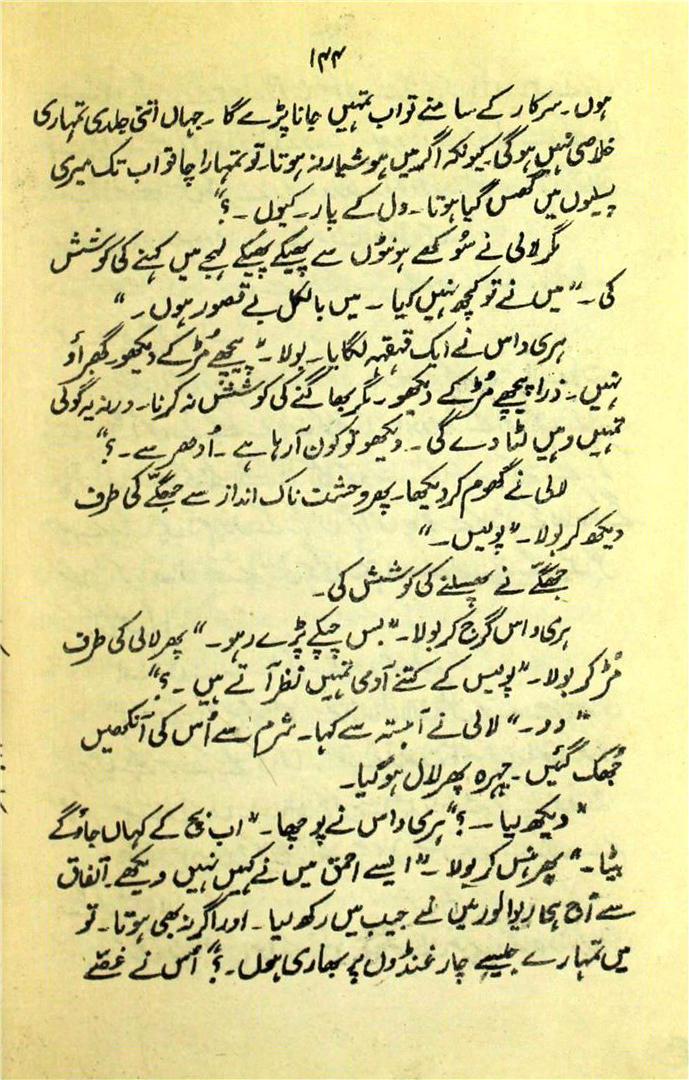 ۱۴۴
ہوں۔ سرکار کے سامنے تو اب تمہیں جانا پڑے گا۔ جہاں اتنی جلدی تمہاری
خلاصی نہیں ہوگی۔ کیونکہ اگر میں ہوشیار نہ ہوتا۔ تو تمہارا چاقو اب تک میری
پسلیوں میں گھس گیا ہوتا۔ دل کے پار۔ کیوں۔ ؟"
مگر لالی نے سُوکھے ہونٹوں سے پھیکے پھیکے لہجے میں کہنے کی کوشش
کی۔ "میں نے تو کچھ نہیں کیا۔ میں بالکل بے قصور ہوں۔"
ہری داس نے ایک قہقہہ لگایا۔ بولا۔ "پیچھے مُڑ کے دیکھو۔ گھبراؤ
نہیں۔ ذرا پیچھے مُڑ کے دیکھو۔ مگر بھاگنے کی کوشش نہ کرنا۔ ورنہ یہ گولی
تمہیں وہیں لٹا دے گی۔ دیکھو تو کون آ رہا ہے۔ اُدھر سے۔ ؟"
لالی نے گھوم کر دیکھا۔ پھر وحشت ناک انداز سے جھگّے کی طرف
دیکھ کر بولا۔ "پولیس۔"
جھگّے نے پھسلنے کی کوشش کی۔
ہری داس گرج کر بولا۔ "بس چپکے پڑے رہو۔" پھر لالی کی طرف
مُڑ کر بولا۔ "پولیس کے کتنے آدمی تمہیں نظر آتے ہیں۔ ؟"
"دو۔" لالی نے آہستہ سے کہا۔ شرم سے اُس کی آنکھیں
جُھک گئیں۔ چہرہ پھر لال ہو گیا۔
"دیکھ لیا۔ ؟" ہری داس نے پوچھا۔ "اب بچ کے کہاں جاؤ گے
بیٹا۔" پھر ہنس کر بولا۔ "ایسے احمق میں نے کہیں نہیں دیکھے۔ اتفاق
سے آج ہی ریوالور میں نے جیب میں رکھ لیا۔ اور اگر نہ بھی ہوتا۔ تو
میں تمہارے جیسے چار غنڈوں پر بھاری ہوں۔ ؟" اُس نے غصّے